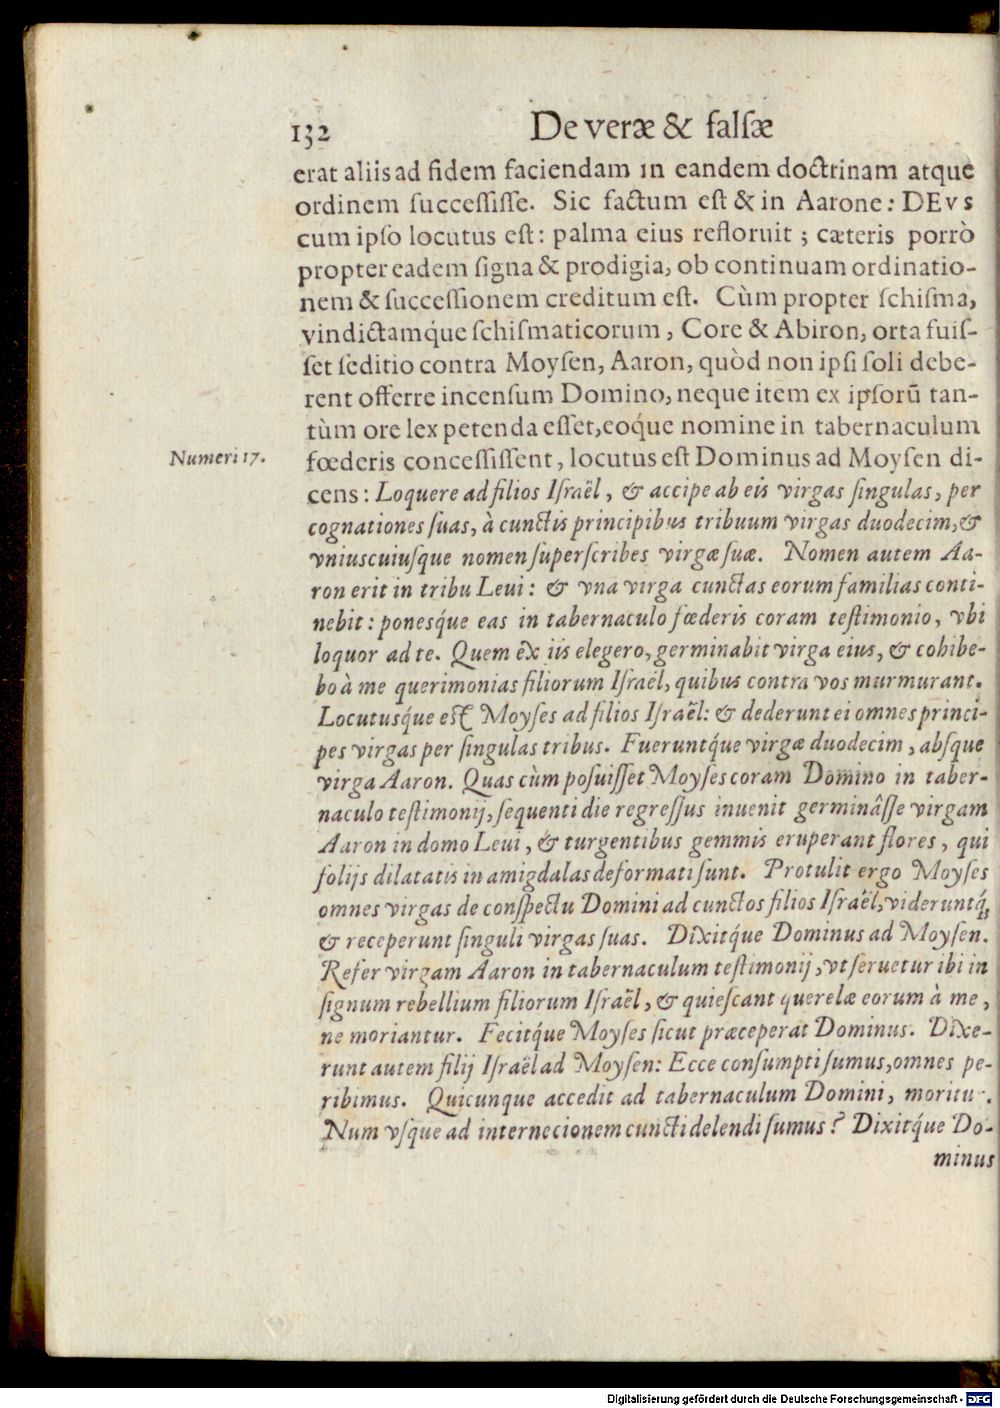 132 De veræ & falſæ
erat aliis ad fidem faciendam in eandem doctrinam atque
ordinem ſucceſſiſſe. Sic factum eſt & in Aarone: DEvs
cum ipſo locutus eſt: palma eius refloruit; cæteris porrò
propter eadem ſigna & prodigia, ob continuam ordinatio-
nem & ſucceſſionem creditum eſt. Cùm propter ſchiſma,
vindictamque ſchiſmaticorum, Core & Abiron, orta fuiſ-
ſet ſeditio contra Moyſen, Aaron, quòd non ipſi ſoli debe-
rent offerre incenſum Domino, neque item ex ipſorū tan-
tùm ore lex petenda eſſet, eoq́ue nomine in tabernaculum
Numeri 17.
fœderis conceſſiſſent, locutus eſt Dominus ad Moyſen di-
cens: Loquere ad filios Iſraël, & accipe ab eis virgas ſingulas, per
cognationes ſuas, à cunctis principibus tribuum virgas duodecim, &
vniuscuiuſque nomen ſuperſcribes virgæ ſuæ. Nomen autem Aa-
ron erit in tribu Leui: & vna virga cunctas eorum familias conti-
nebit: ponesq́ue eas in tabernaculo fœderis coram teſtimonio, vbi
loquor ad te. Quem ex iis elegero, germinabit virga eius, & cohibe-
bo à me querimonias filiorum Iſraël, quibus contra vos murmurant.
Locutusq́ue eſt Moyſes ad filios Iſraël: & dederunt ei omnes princi-
pes virgas per ſingulas tribus. Fueruntq́ue virgæ duodecim, abſque
virga Aaron. Quas cùm poſuiſſet Moyſes coram Domino in taber-
naculo teſtimonij, ſequenti die regreſſus inuenit germinâſſe virgam
Aaron in domo Leui, & turgentibus gemmis eruperant flores, qui
folijs dilatatis in amigdalas deformati ſunt. Protulit ergo Moyſes
omnes virgas de conſpectu Domini ad cunctos filios Iſraël, videruntq́;
& receperunt ſinguli virgas ſuas. Dixitq́ue Dominus ad Moyſen.
Refer virgam Aaron in tabernaculum teſtimonij, vt ſeruetur ibi in
ſignum rebellium filiorum Iſraël, & quieſcant querelæ eorum à me,
ne moriantur. Fecitq́ue Moyſes ſicut præceperat Dominus. Dixe-
runt autem filij Iſraël ad Moyſen: Ecce conſumpti ſumus, omnes pe-
ribimus. Quicunque accedit ad tabernaculum Domini, moritu.
Num vſque ad internecionem cuncti delendi ſumus? Dixitq́ue Do-
minus
Digitalisierung gefördert durch die Deutsche Forschungsgemeinschaft - DFG